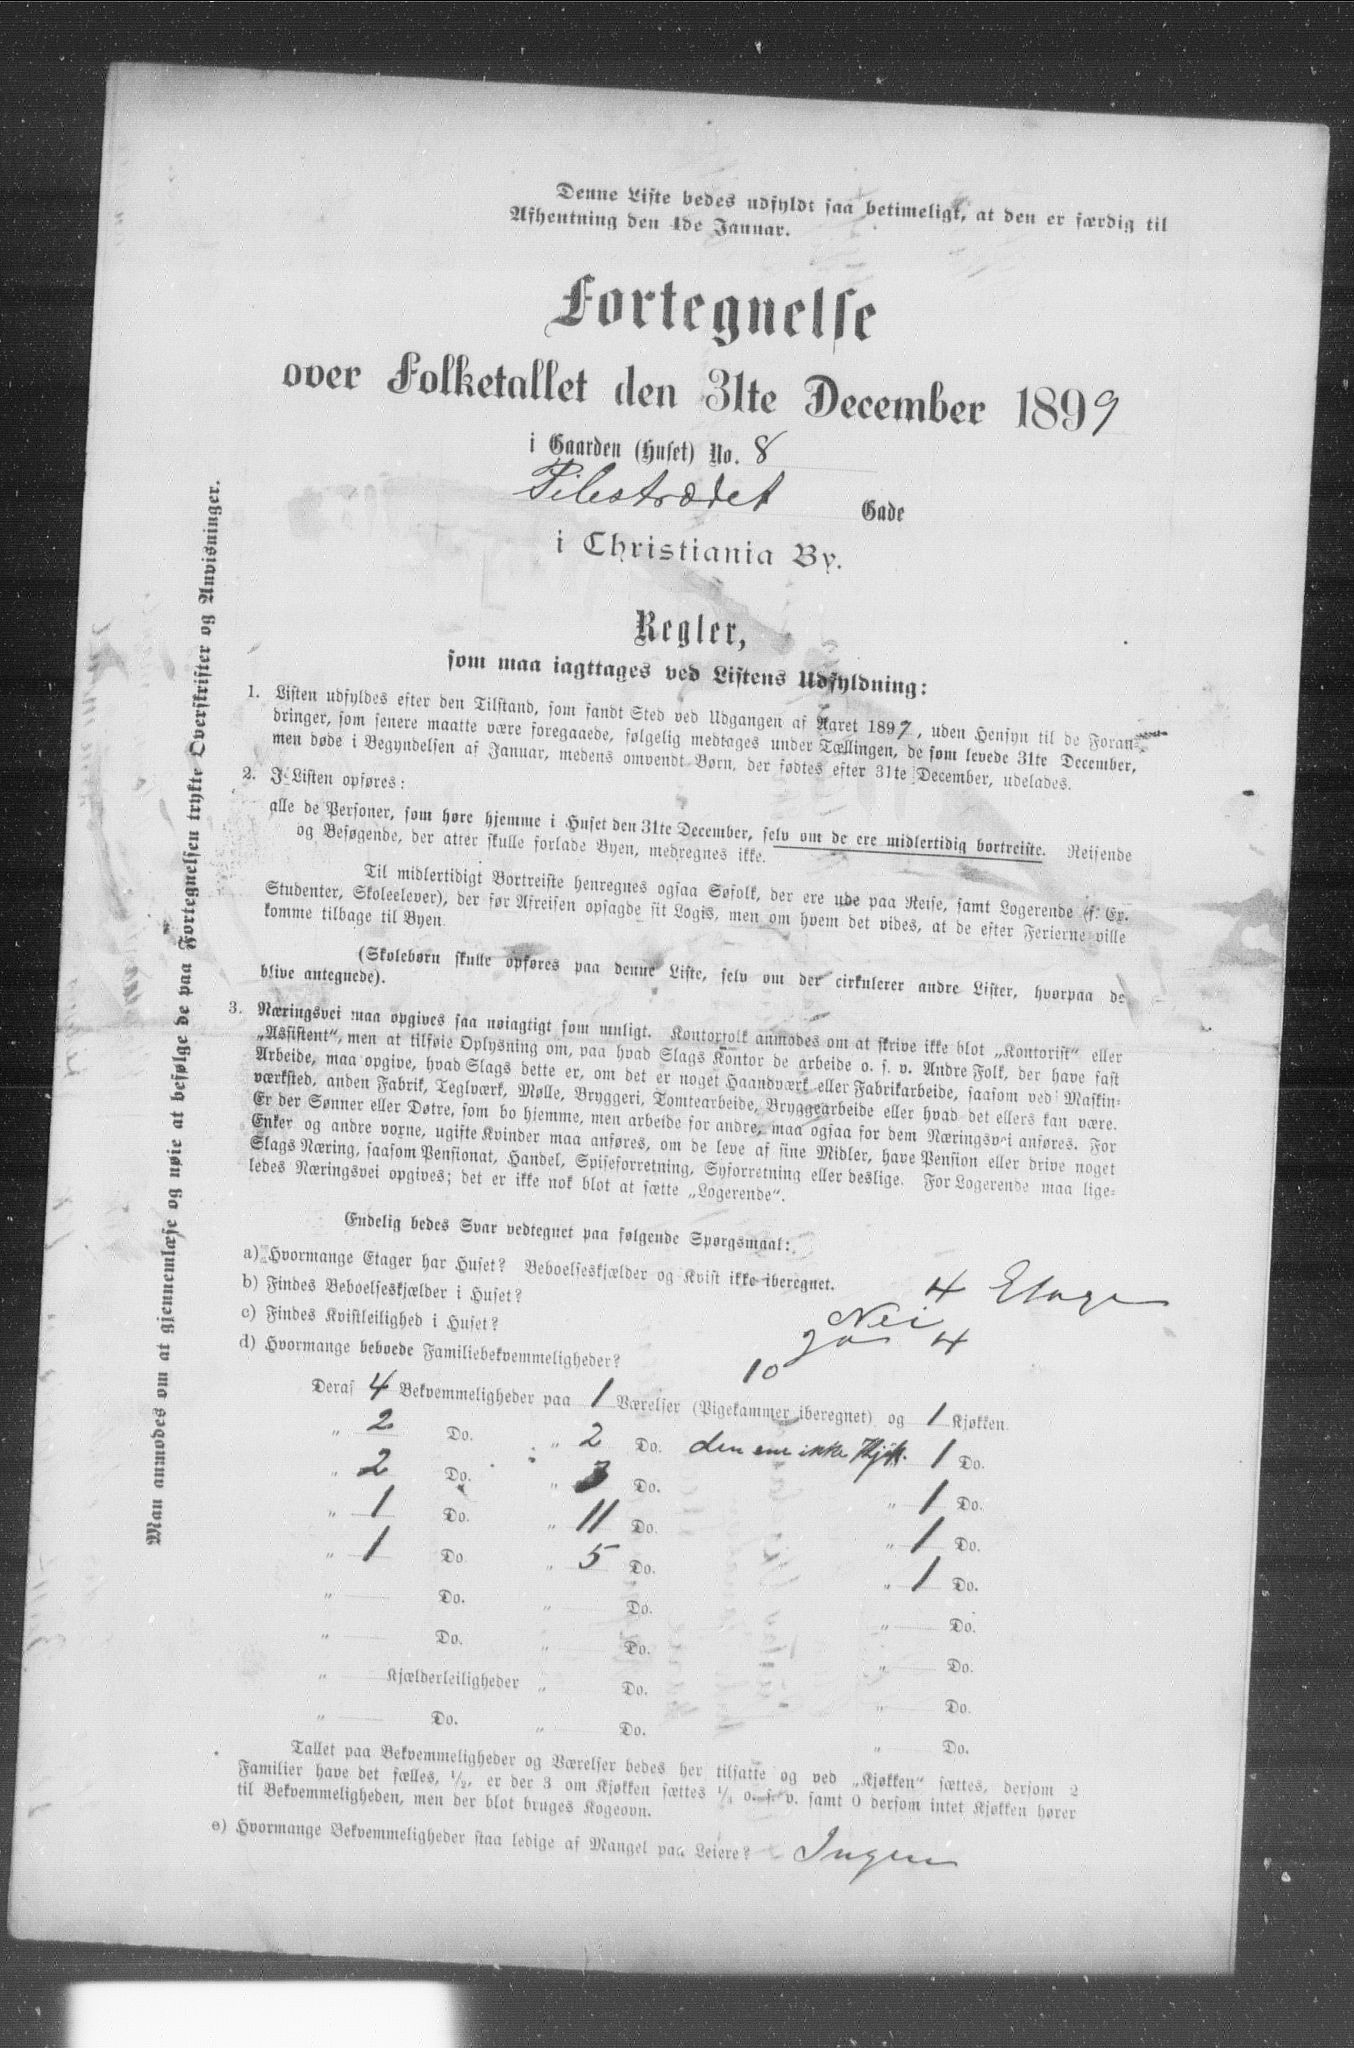 Denne Liste bedes udfyldt saa betimeligt, at den er færdig til
Afhentning den 4de Januar.
Fortegnelse
over Folketallet den 31te December 1899
i Gaarden (Huset) No. 8
Pilestrædet Gade
i Christiania By.
Regler,
som maa iagttages ved Listens Udfyldning:
1. Listen udfyldes efter den Tilstand, som fandt Sted ved Udgangen af Aaret 1899, uden Hensyn til de Foran-
dringer, som senere maatte være foregaaede, følgelig medtages under Tællingen, de som levede 31te December,
men døde i Begyndelsen af Januar, medens omvendt Børn, der fødtes efter 31te December, udelades.
2. I Listen opføres:
alle de Personer, som høre hjemme i Huset den 31te December, selv om de ere midlertidig bortreiste. Reisende
og Besøgende, der atter skulle forlade Byen, medregnes ikke.
Til midlertidigt Bortreiste henregnes ogsaa Søfolk, der ere ude paa Reise, samt Logerende (f. Ex.
Studenter, Skoleelever), der før Afreisen opsagde sit Logis, men om hvem det vides, at de efter Ferierne ville
komme tilbage til Byen.
(Skolebørn skulle opføres paa denne Liste, selv om der cirkulerer andre Lister, hvorpaa de
blive antegnede).
3. Næringsvei maa opgives saa nøiagtigt som muligt. Kontorfolk anmodes om at skrive ikke blot „Kontorist" eller
„Assistent", men at tilføie Oplysning om, paa hvad Slags Kontor de arbeide o. s. v. Andre Folk, der have fast
Arbeide, maa opgive, hvad Slags dette er, om det er noget Haandværk eller Fabrikarbeide, saasom ved Maskin-
værksted, anden Fabrik, Teglværk, Mølle, Bryggeri, Tomtearbeide, Bryggearbeide eller hvad det ellers kan være.
Er der Sønner eller Døtre, som bo hjemme, men arbeide for andre, maa ogsaa for dem Næringsvei anføres. For
Enker og andre voxne, ugifte Kvinder maa anføres, om de leve af sine Midler, have Pension eller drive noget
Slags Næring, saasom Pensionat, Handel, Spiseforretning, Syforretning eller deslige. For Logerende maa lige-
ledes Næringsvei opgives; det er ikke nok blot at sætte „Logerende".
Endelig bedes Svar vedtegnet paa følgende Spørgsmaal:
a) Hvormange Etager har Huset? Beboelseskjælder og Kvist ikke iberegnet. 4 Etage
b) Findes Beboelseskjælder i Huset? Nei
c) Findes Kvistleilighed i Huset? Ja 4
d) Hvormange beboede Familiebekvemmeligheder? 10
Deraf 4 Bekvemmeligheder paa 1 Værelser (Pigekammer iberegnet) og 1 Kjøkken
„ 2 Do. „ 2 Do. den ene ikke Kjøk. 1 Do.
„ 2 Do. „ 3 Do. „ 1 Do.
„ 1 Do. „ 11 Do. „ 1 Do.
„ 1 Do. „ 5 Do. „ 1 Do.
„ Do. „ Do. „ Do.
„ Do. „ Do. „ Do.
„ Kjælderleiligheder „ Do. „ Do.
„ Do. „ Do. „ Do.
Tallet paa Bekvemmeligheder og Værelser bedes her tilsatte og ved „Kjøkken" sættes, dersom 2
Familier have det fælles, 1/2, er der 3 om Kjøkken sættes 1/3 o. s. v. samt 0 dersom intet Kjøkken hører
til Bekvemmeligheden, men der blot bruges Kogeovn.
e) Hvormange Bekvemmeligheder staa ledige af Mangel paa Leiere? Ingen
Man anmodes om at gjennemlæse og nøie at besølge de paa Fortegnelsen trykte Overskrifter og Anvisninger.